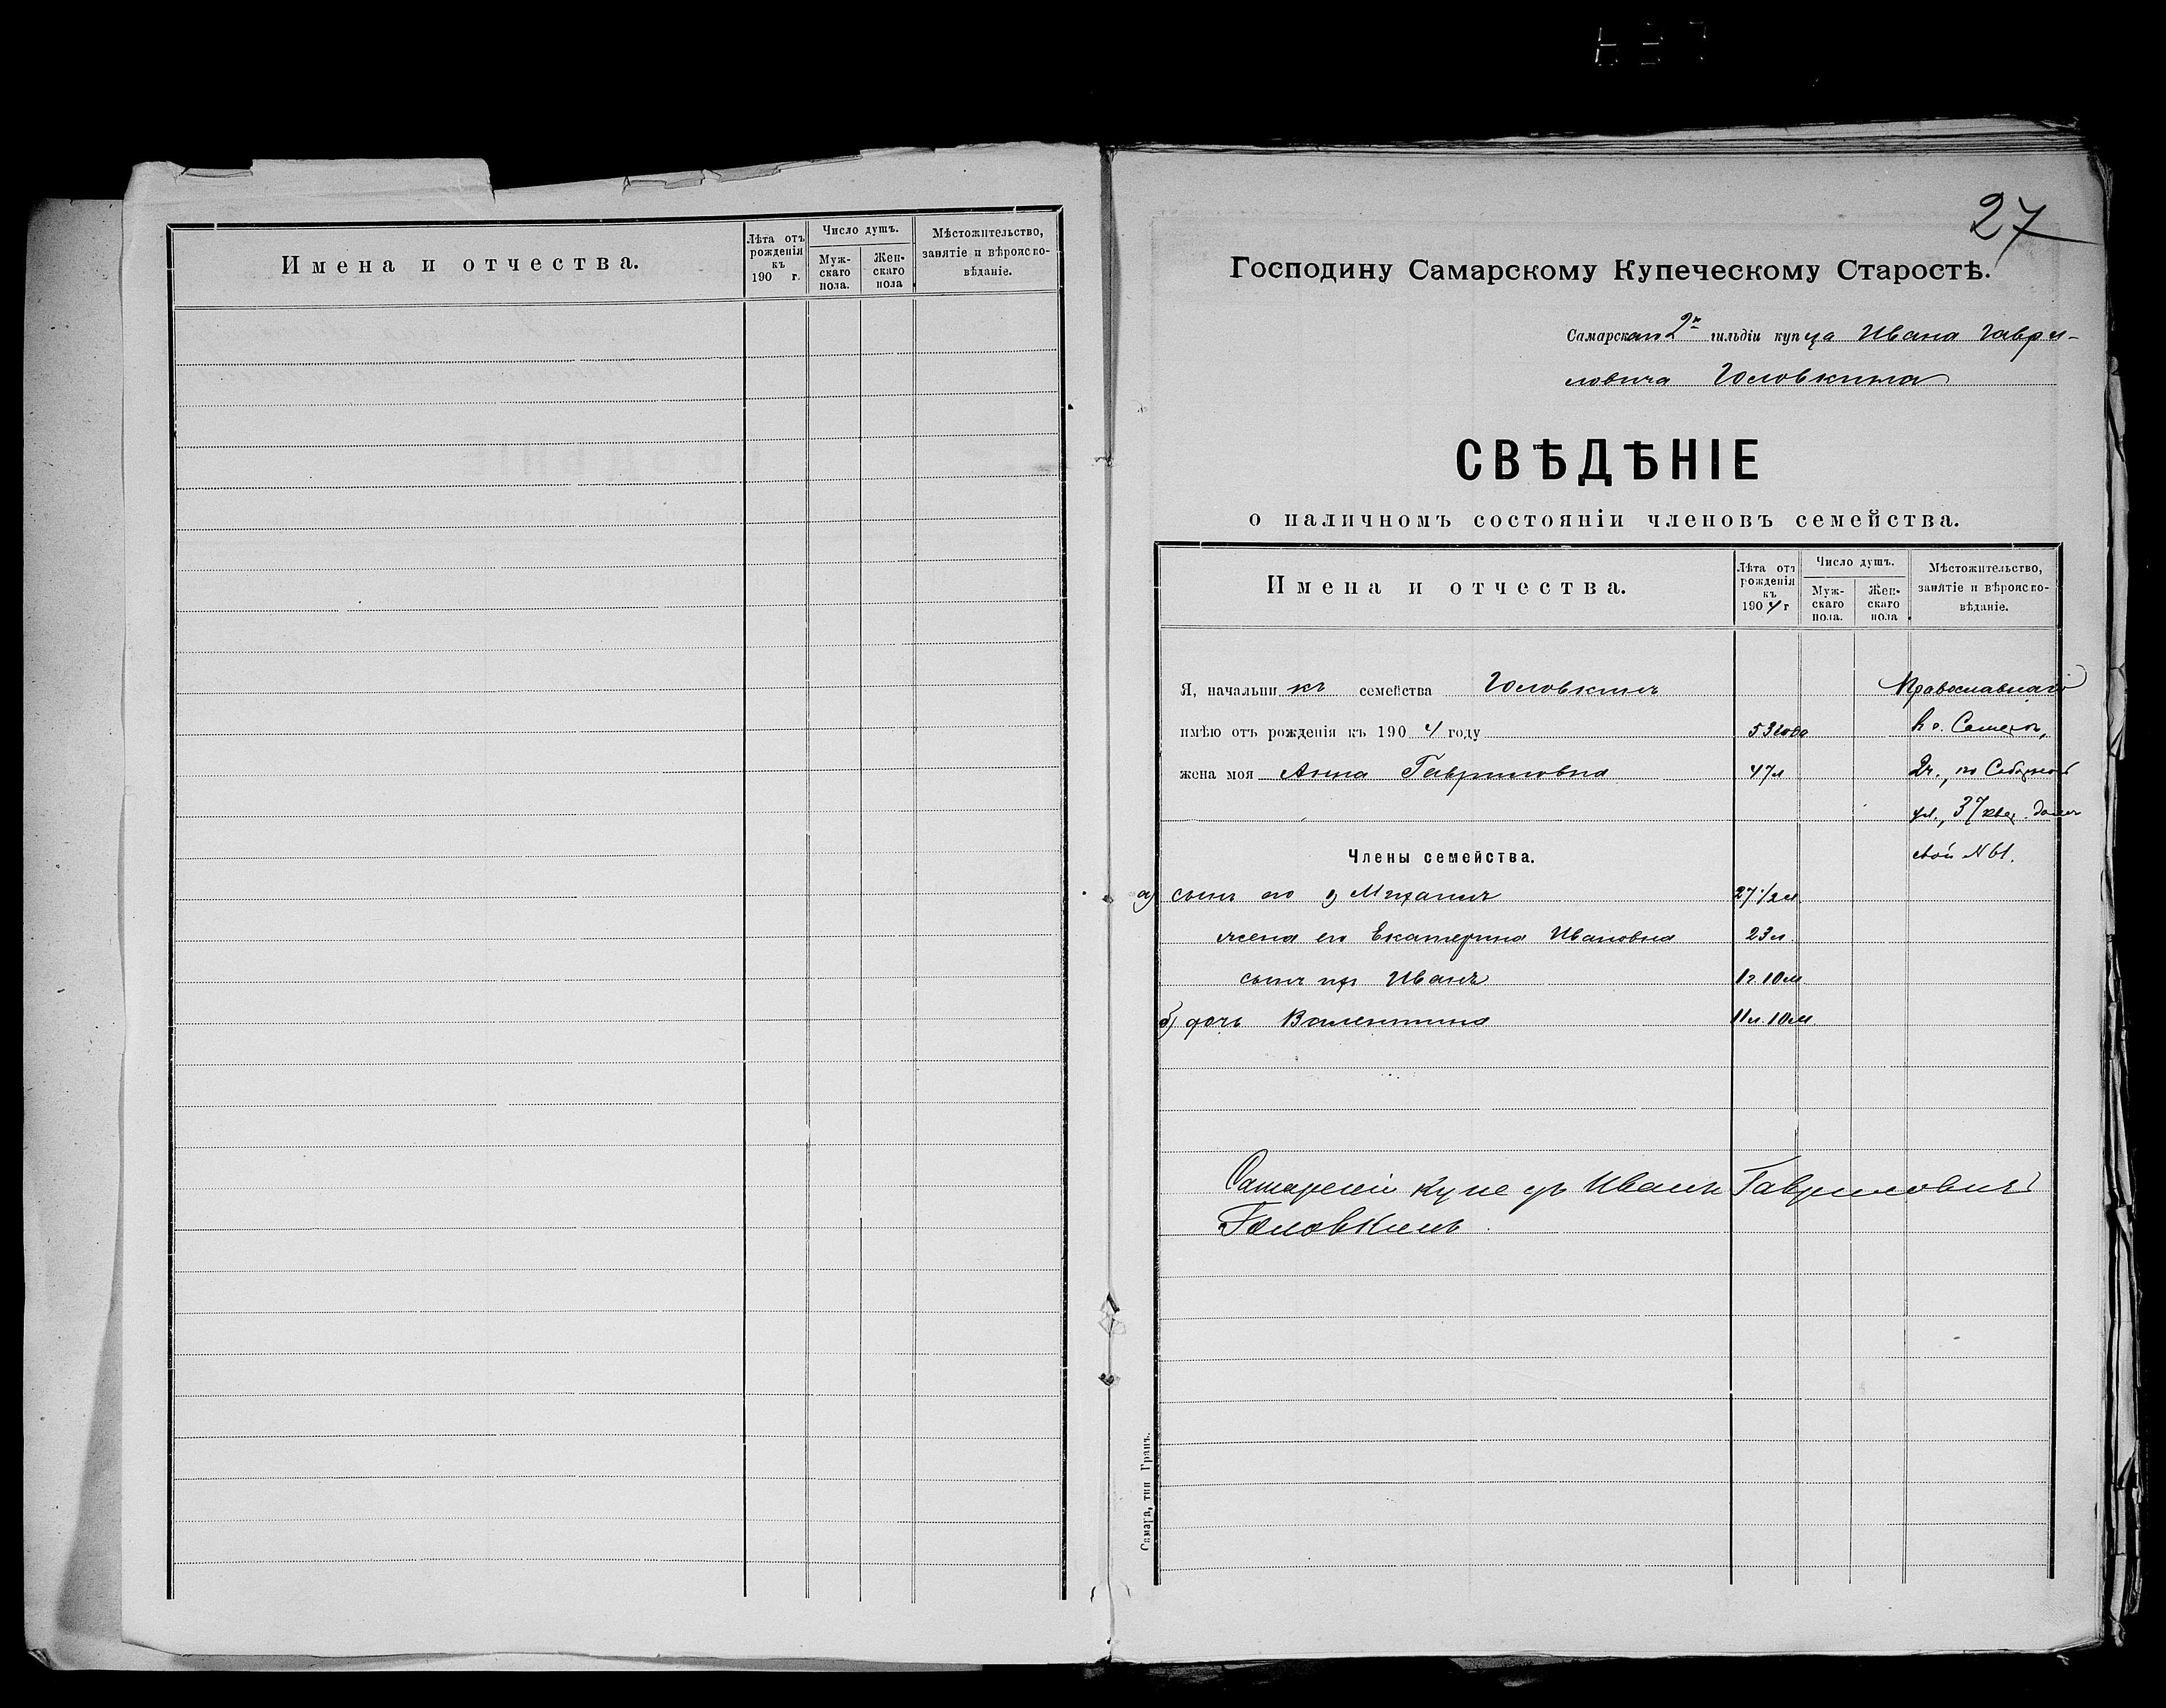 Имена и отчества.
Лѣта отъ рожденія къ 190 г.
Число душъ.
Муж-скаго пола.
Жен-скаго пола
Мѣстожительство, занятіе и вѣроиспо-вѣданіе.
27
Господину Самарскому Купеческому Старостѣ.
Самарскаго 2й гильдіи купца Ивана Гаври-
ловича Головкина
СВѢДѢНІЕ
о наличномъ состояніи членовъ семейства.
Имена и отчества.
Лѣта отъ рожденія къ 1904 г
Число душъ.
Муж-скаго пола.
Жен-скаго пола
Мѣстожительство, занятіе и вѣроиспо-вѣданіе.
Я, начальникъ семейства Головкинъ Православнаго
имѣю отъ рожденія къ 1904 году 53 года
жена моя Анна Гавриловна 47 л 2 ч., по Соборной
ул., 37 квар. домъ
Члены семейства. свой № 61.
а) сынъ его Михаилъ 27 1/2 л.
жена его Екатерина Ивановна 23 л.
сынъ ихъ Иванъ 1 г. 10 м.
б) дочь Валентина 11 л. 10 м.
Самарскій купецъ Иванъ Гавриловичъ
Головкинъ.
Самара, тип Гранъ.